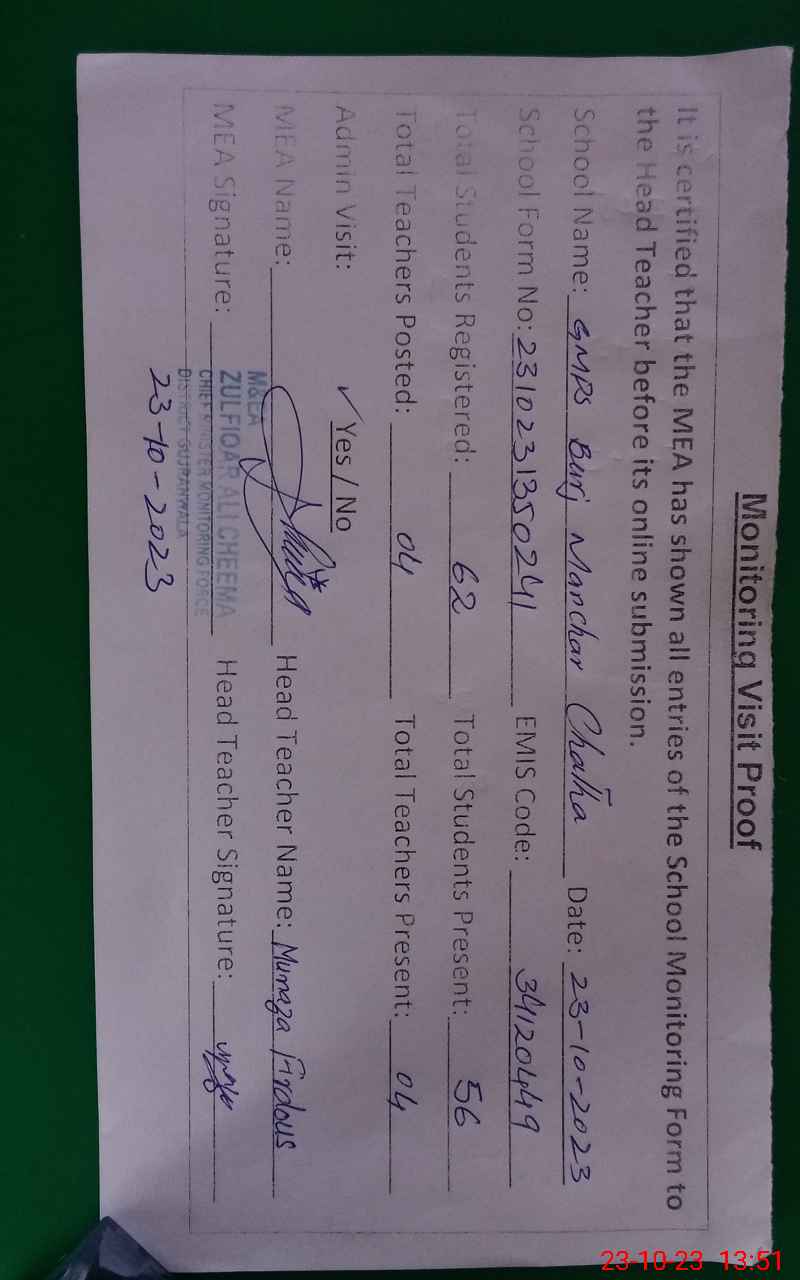 Monitoring Visit Proof
It is certified that the MEA has shown all entries of the School Monitoring Form to
the Head Teacher before its online submission.
School Name: GMPS Burj Manchar Chatha Date: 23-10-2023
School Form No: 2310231350241 EMIS Code: 34120449
Total Students Registered: 62 Total Students Present: 56
Total Teachers Posted: 04 Total Teachers Present: 04
Admin Visit: ✓ Yes / No
MEA Name: Head Teacher Name: Munaza Firdous
MEA Signature: Head Teacher Signature:
ZULFIQAR ALI CHEEMA
CHIEF MINISTER MONITORING FORCE
DISTRICT GUJRANWALA
23-10-2023
23-10-23 13:51